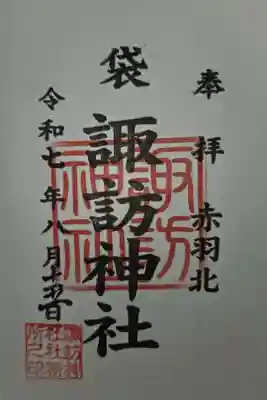 奉拝 赤羽北
袋 諏訪神社
令和七年八月
諏訪神社